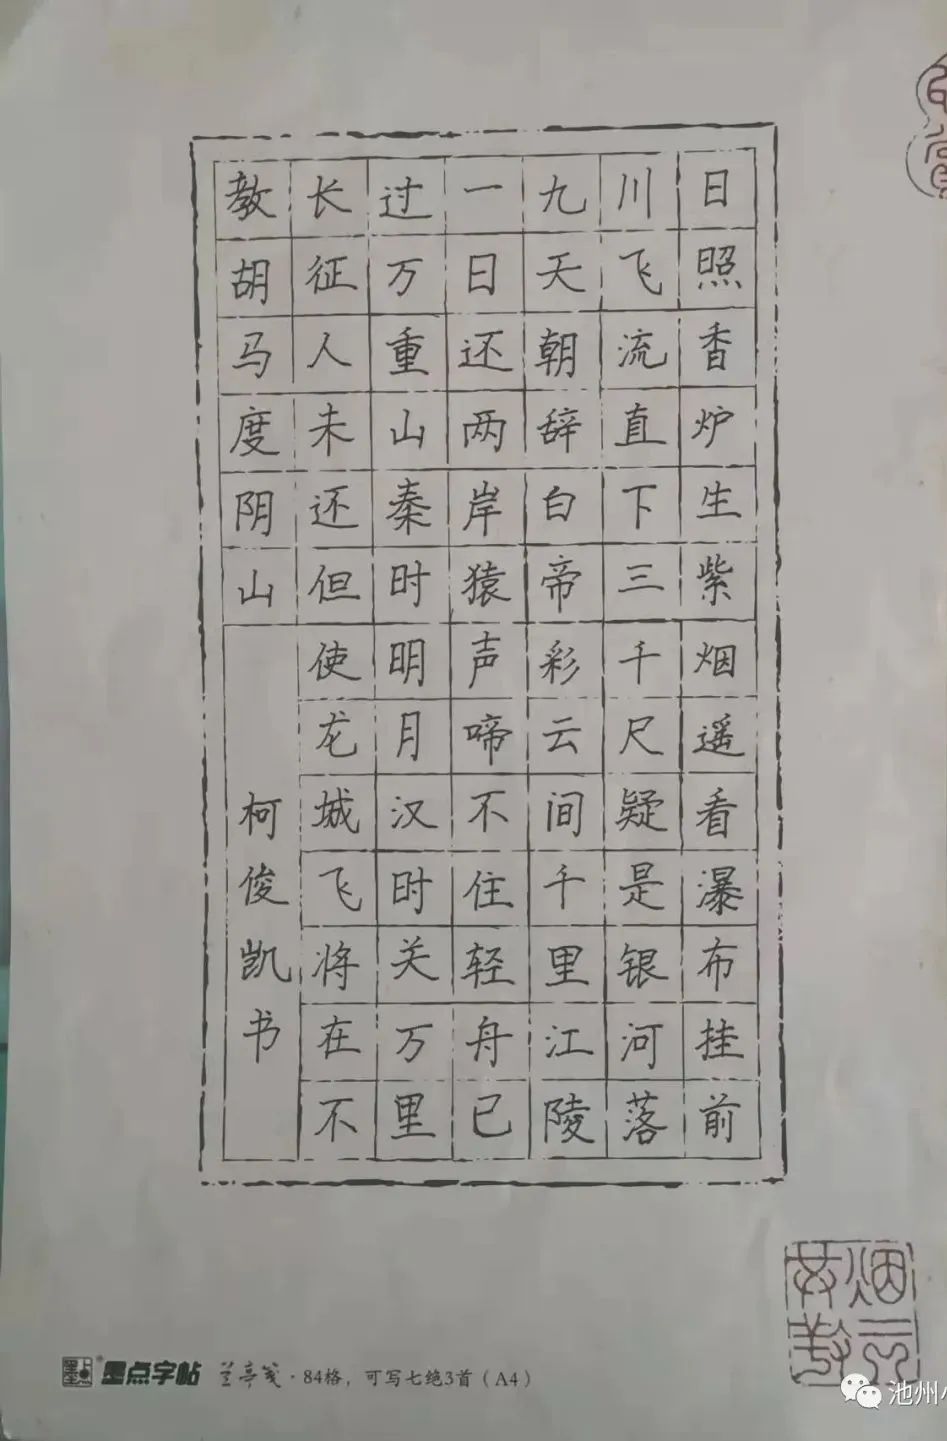 日照香炉生紫烟遥看瀑布挂前
川飞流直下三千尺疑是银河落
九天朝辞白帝彩云间千里江陵
一日还两岸猿声啼不住轻舟已
过万重山秦时明月汉时关万里
长征人未还但使龙城飞将在不
教胡马度阴山
柯俊凯书
墨点字帖 兰亭笺·84格，可写七绝3首（A4）
池州小